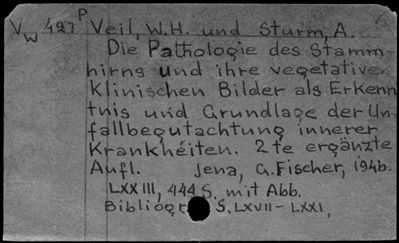 Vw 427 P Veil, W.H. und Sturm, A.
Die Pathologie des Stamm-
hirns und ihre vegetativen
klinischen Bilder als Erkenn
tnis und Grundlage der Un-
fallbegutachtung innerer
Krankheiten. 2te ergänzte
Aufl. Jena, G. Fischer, 1946.
LXXIII, 444 S. mit Abb.
Bibliogr. S. LXVII-LXXI,